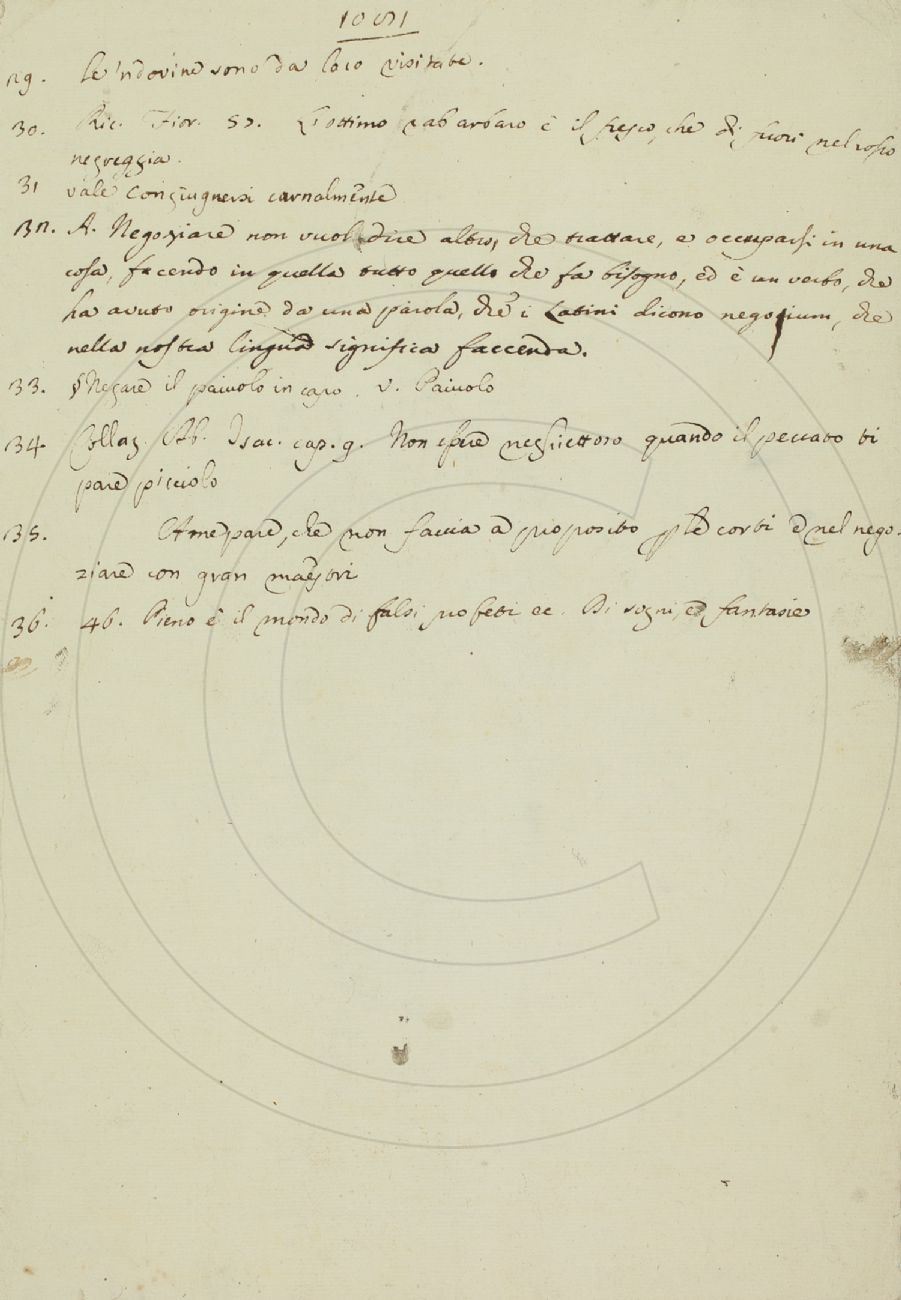 29. le 'ndovine sono da loco visitate.
30. Ric. Fior. 57. L'ottimo rabarbaro è il fresco, che di fuori nel rosso
negreggia.
31 vale congiugnersi carnalmente
32. A. Negoziare non vuol dire altro, che trattare, e occuparsi in una
cosa, facendo in quella tutto quello che fa bisogno, ed è un verbo, che
ha avuto origine da una parola, che i Latini dicono negotium, che
nella nostra lingua significa faccenda.
33. § Negare il paiuolo in capo. v. Paiuolo
34 Collaz. Ab. Isac. cap. 9. Non essere neghiettoso quando il peccato ti
pare picciolo
35. A me pare, che non faccia a proposito le corti e nel nego-
ziare con gran maestri
36. 46. Pieno è il mondo di falsi profeti ec. Di sogni, ed fantasie